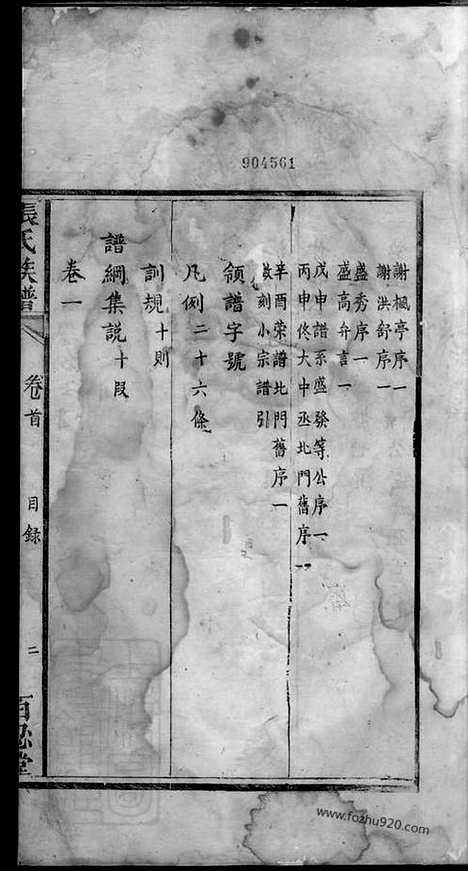 904561
謝楓亭序一
謝洪舒序一
盛秀序一
盛高弁言一
戊申譜系盛發等公序一
丙申修大中丞北門舊序一
辛酉榮譜北門舊序一
刻小宗譜引
領譜字號
凡例二十六條
訓規十則
譜綱集說十段
卷一
張氏族譜
卷首
目錄
二
百忍堂
www.fozhu920.com